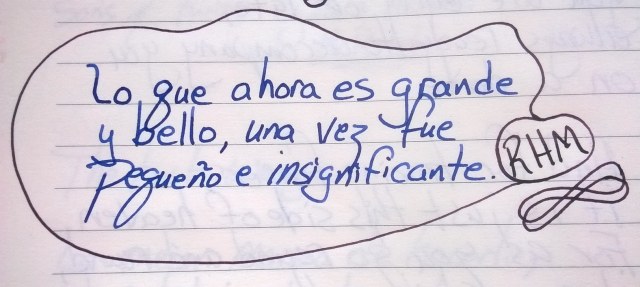 Lo que ahora es grande
y bello, una vez fue
pequeño e insignificante.
RHM